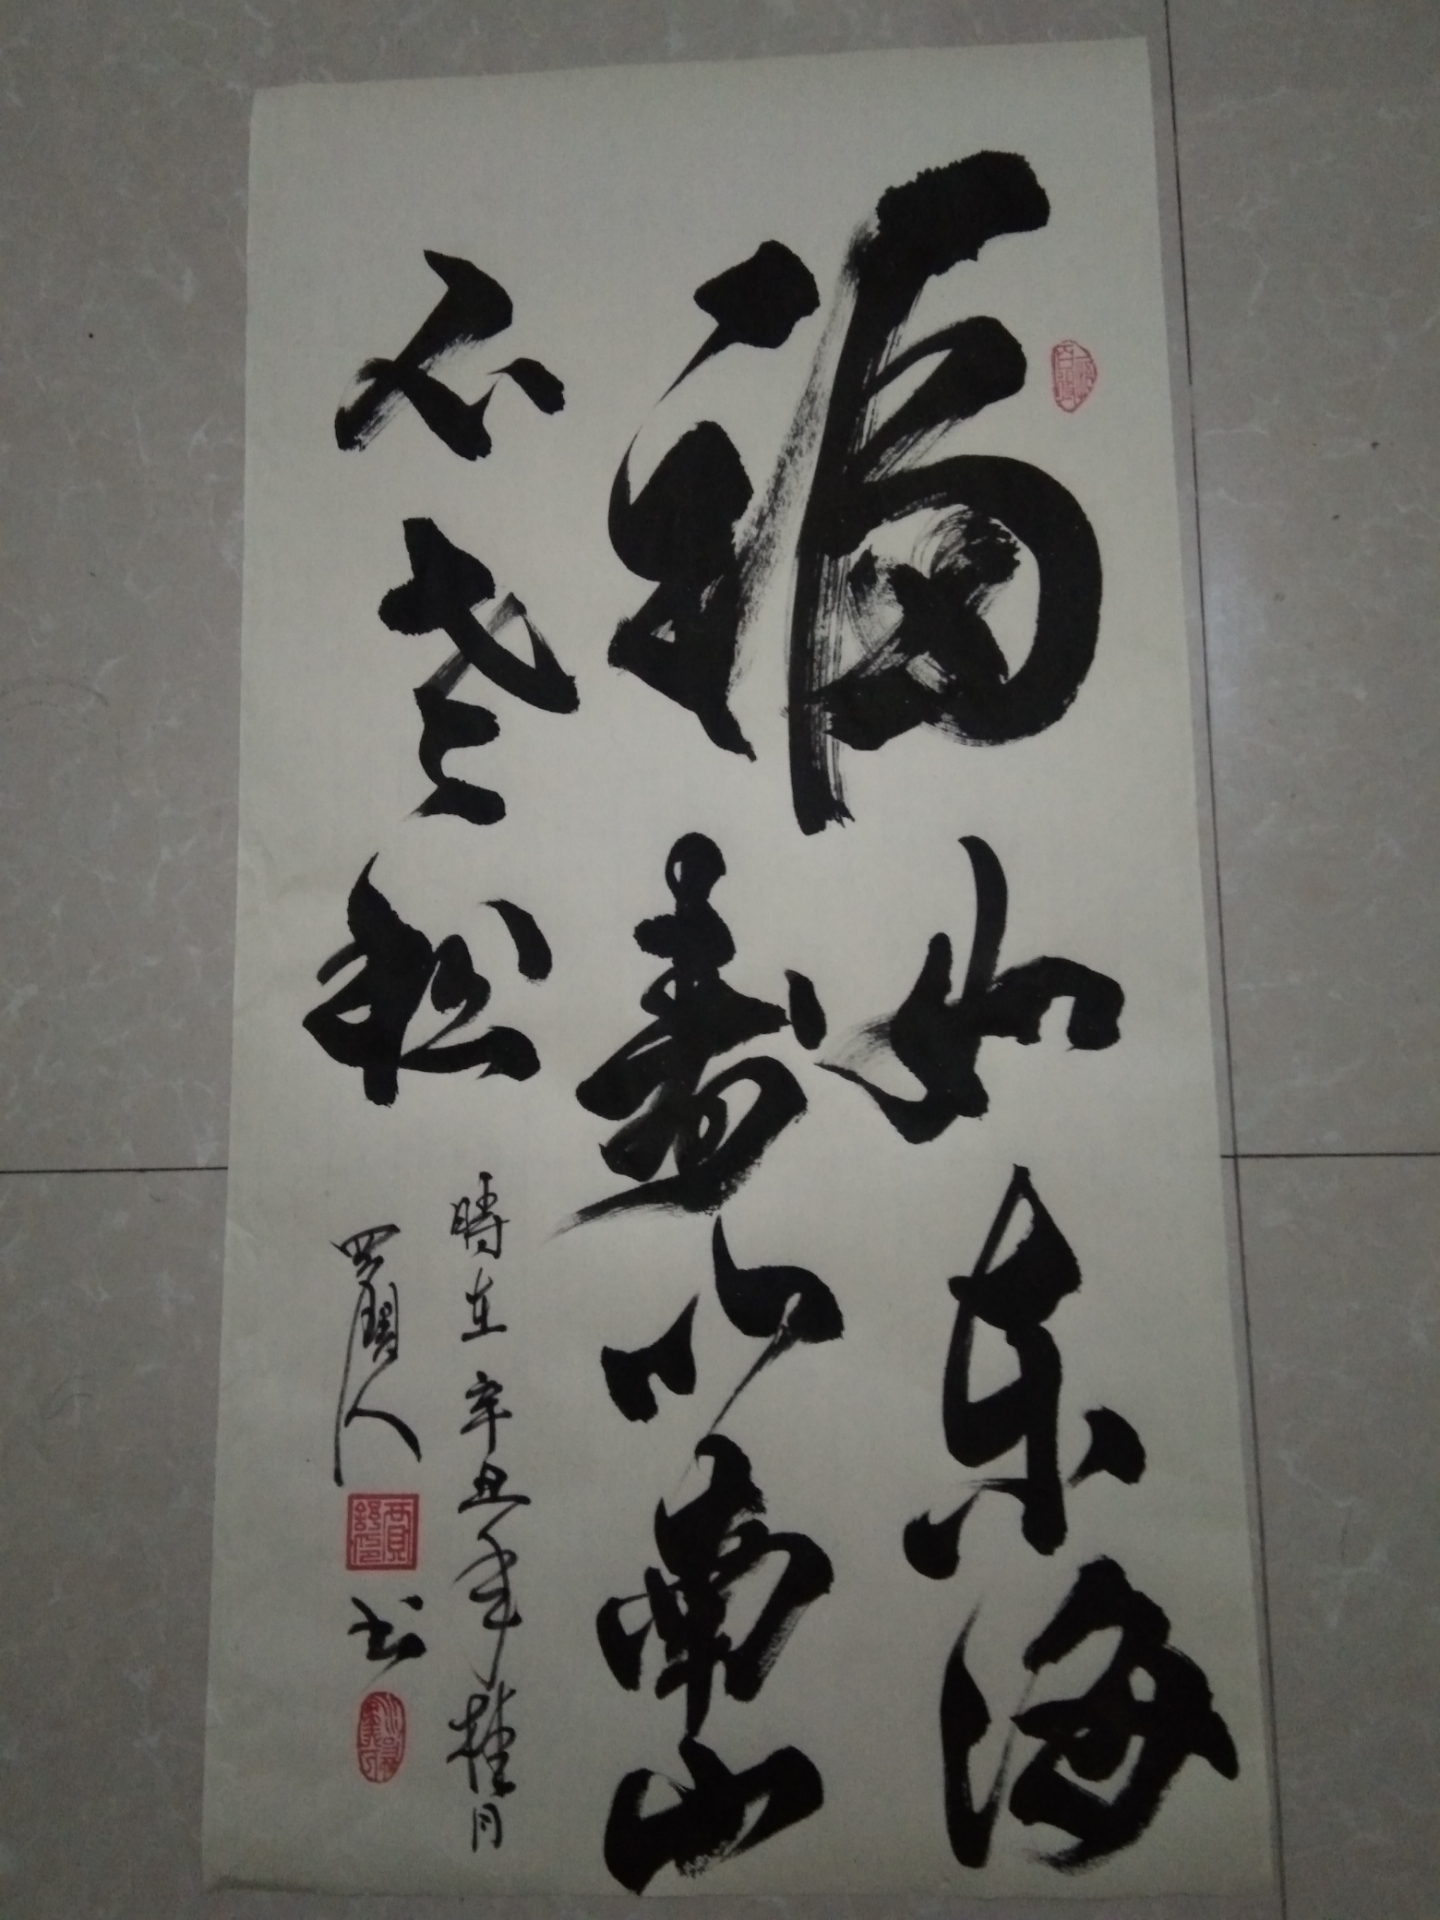 福如东海
寿比南山
不老松
時在辛丑年桂月
书